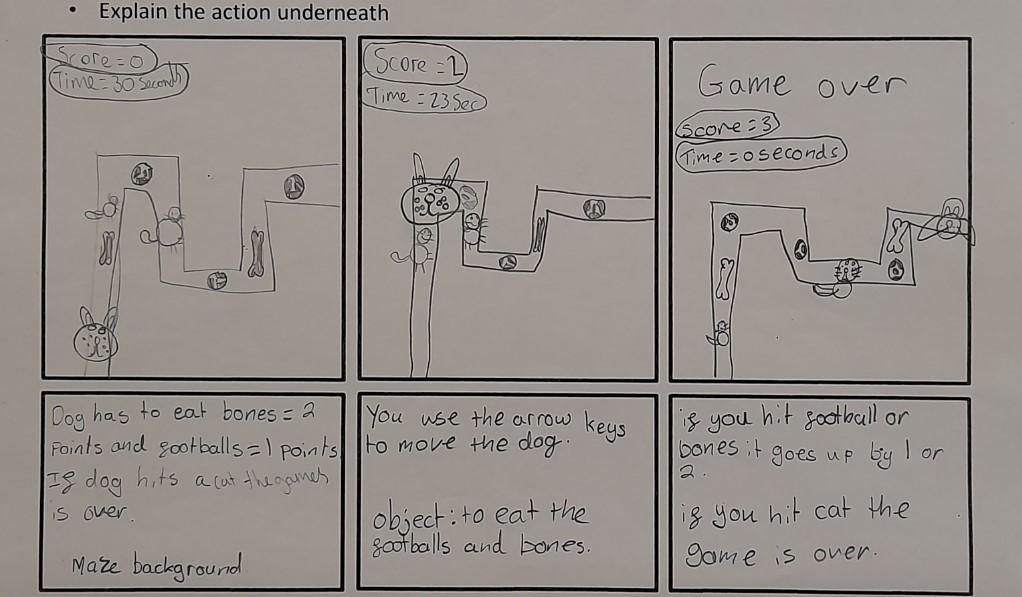 • Explain the action underneath
Score = 0
Time = 30 Seconds
Score = 1
Time = 23 Sec
Game over
Score = 3
Time = 0 seconds
Dog has to eat bones = 2
Points and footballs = 1 points
If dog hits a cat the games
is over.
Maze background
You use the arrow keys
to move the dog.
object: to eat the
footballs and bones.
if you hit football or
bones it goes up by 1 or
2.
if you hit cat the
game is over.